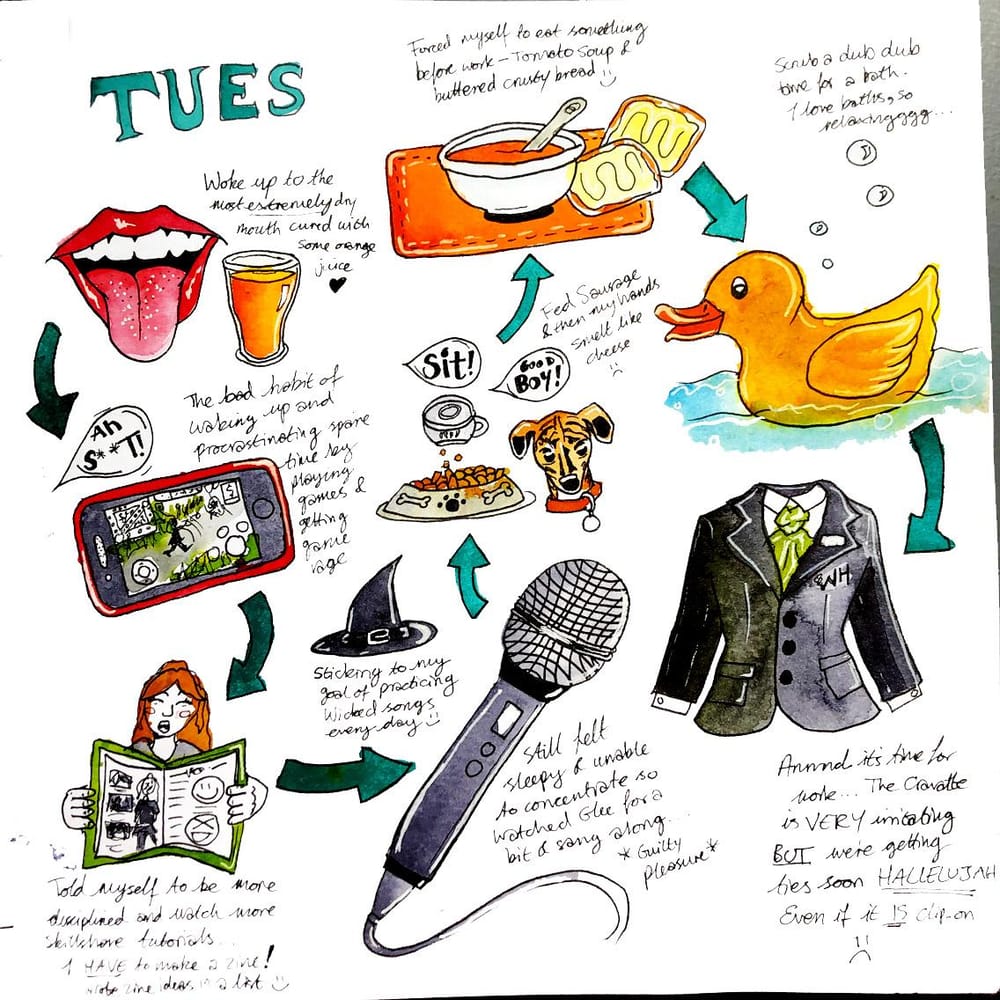 TUES
Woke up to the
most extremely dry
mouth cured with
some orange
juice
Ah
S**T!
The bad habit of
waking up and
procrastinating spare
time by
playing
games &
getting
game
rage
Told myself to be more
disciplined and watch more
skillshare tutorials...
I HAVE to make a zine!
wrote zine ideas in a list
Sticking to my
goal of practicing
Wicked songs
every day
Still felt
sleepy & unable
to concentrate so
watched Glee for a
bit & sang along...
*Guilty
pleasure*
Sit!
GOOD
BOY!
Fed Sausage
& then my hands
smelt like
cheese
Forced myself to eat something
before work - Tomato Soup &
buttered crusty bread
Scrub a dub dub
time for a bath.
I love baths, so
relaxingggg...
WH
Annnd it's time for
work... The Cravatte
is VERY irritating
BUT we're getting
ties soon HALLELUJAH
Even if it IS clip-on